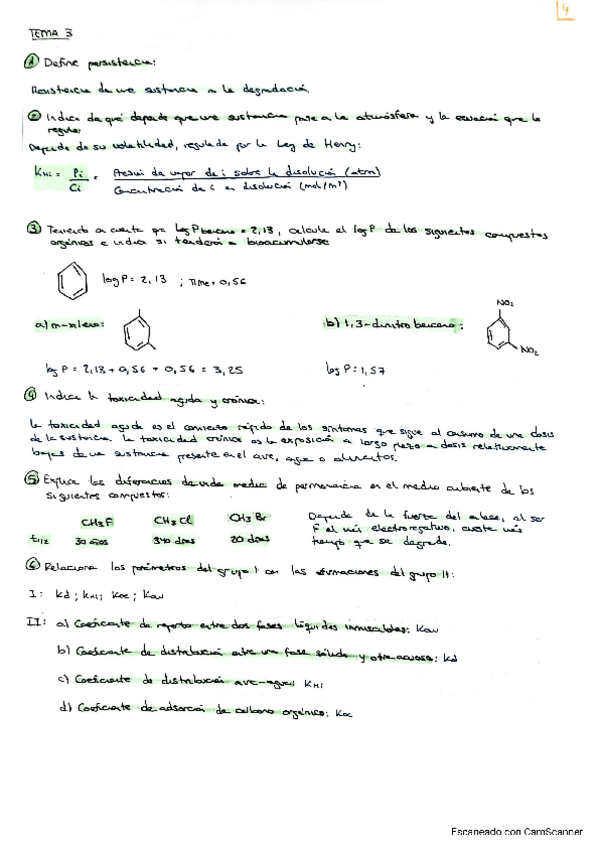 4
TEMA 3
① Define persistencia:
Resistencia de una sustancia a la degradación
② Indica de qué depende que una sustancia pase a la atmósfera y la ecuación que lo
regula:
Depende de su volatilidad, regulada por la Ley de Henry:
KHi = Pi / Ci = Presión de vapor de i sobre la disolución (atm) / Concentración de i en disolución (mol/m³)
③ Teniendo en cuenta que log P benceno = 2,13, calcule el log P de los siguientes compuestos
orgánicos e indica si tenderán a bioacumularse
log P = 2,13 ; πMe = 0,56
a) m-xileno:
b) 1,3-dinitrobenceno:
NO2
NO2
log P = 2,13 + 0,56 + 0,56 = 3,25
log P = 1,57
④ Indica la toxicidad aguda y crónica:
La toxicidad aguda es el comienzo rápido de los síntomas que sigue al consumo de una dosis
de la sustancia. La toxicidad crónica es la exposición a largo plazo a dosis relativamente
bajas de una sustancia presente en el aire, agua o alimentos.
⑤ Explica las diferencias de vida media de permanencia en el medio ambiente de los
siguientes compuestos:
CH3F CH3Cl CH3Br
t1/2 30 años 340 días 20 días
Depende de la fuerza del enlace, al ser
F el más electronegativo, cuesta más
tiempo que se degrade.
⑥ Relaciona los parámetros del grupo I con las afirmaciones del grupo II:
I: Kd ; KHi ; Koc ; Kow
II: a) Coeficiente de reparto entre dos fases líquidas inmiscibles: Kow
b) Coeficiente de distribución entre una fase sólida y otra acuosa: Kd
c) Coeficiente de distribución aire-agua: KHi
d) Coeficiente de adsorción de carbono orgánico: Koc
Escaneado con CamScanner